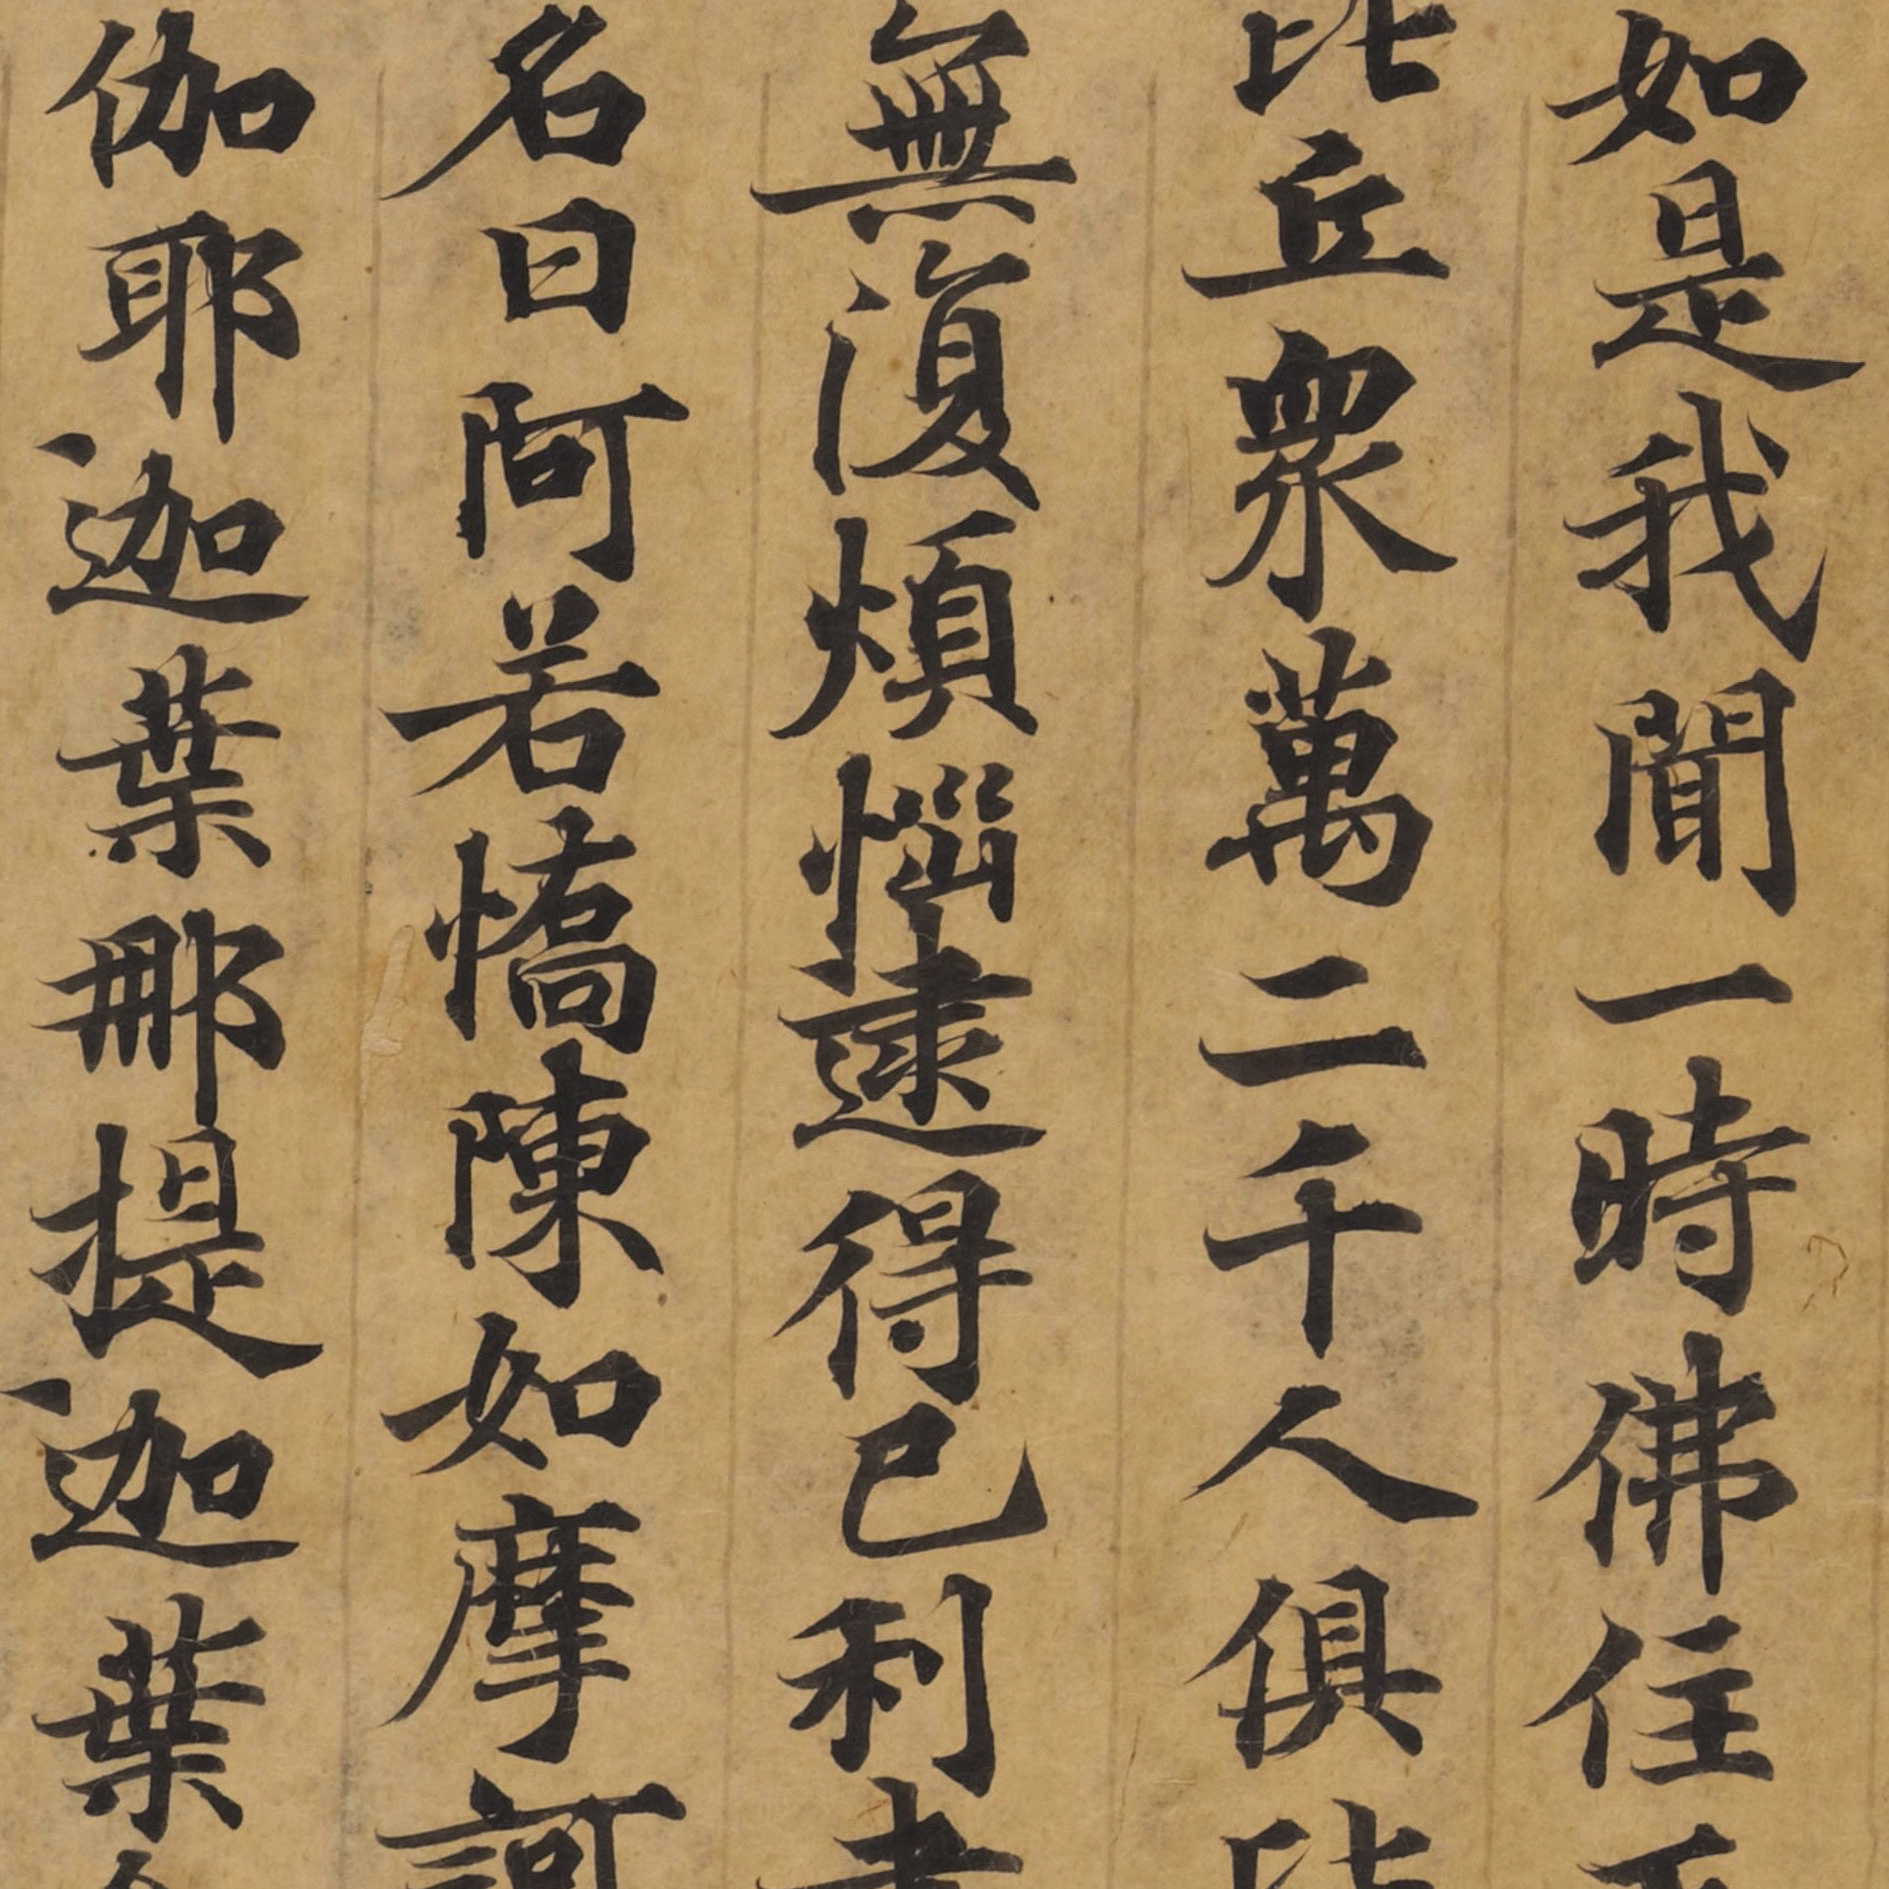 如是我聞一時佛住
比丘衆萬二千人俱皆
無復煩惱逮得已利
名曰阿若憍陳如摩訶
伽耶迦葉那提迦葉